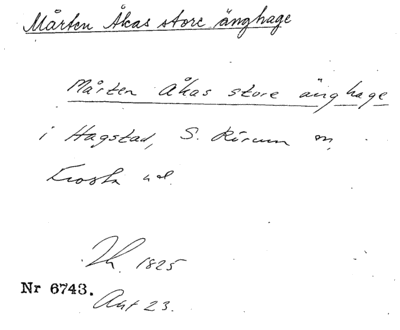 Mårten Åkas store änghage
Mårten Åkas store änghage
i Hagstad, S. Rörum sn,
Frosta hd.
1825
Nr 6743.
Akt 23.